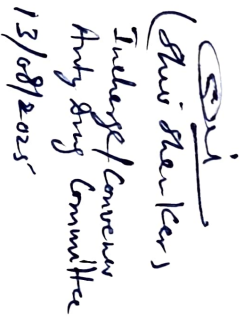 Sd/
(Shiv Shanker)
Incharge/Convenor
Anty Drug Committee
13/08/2025